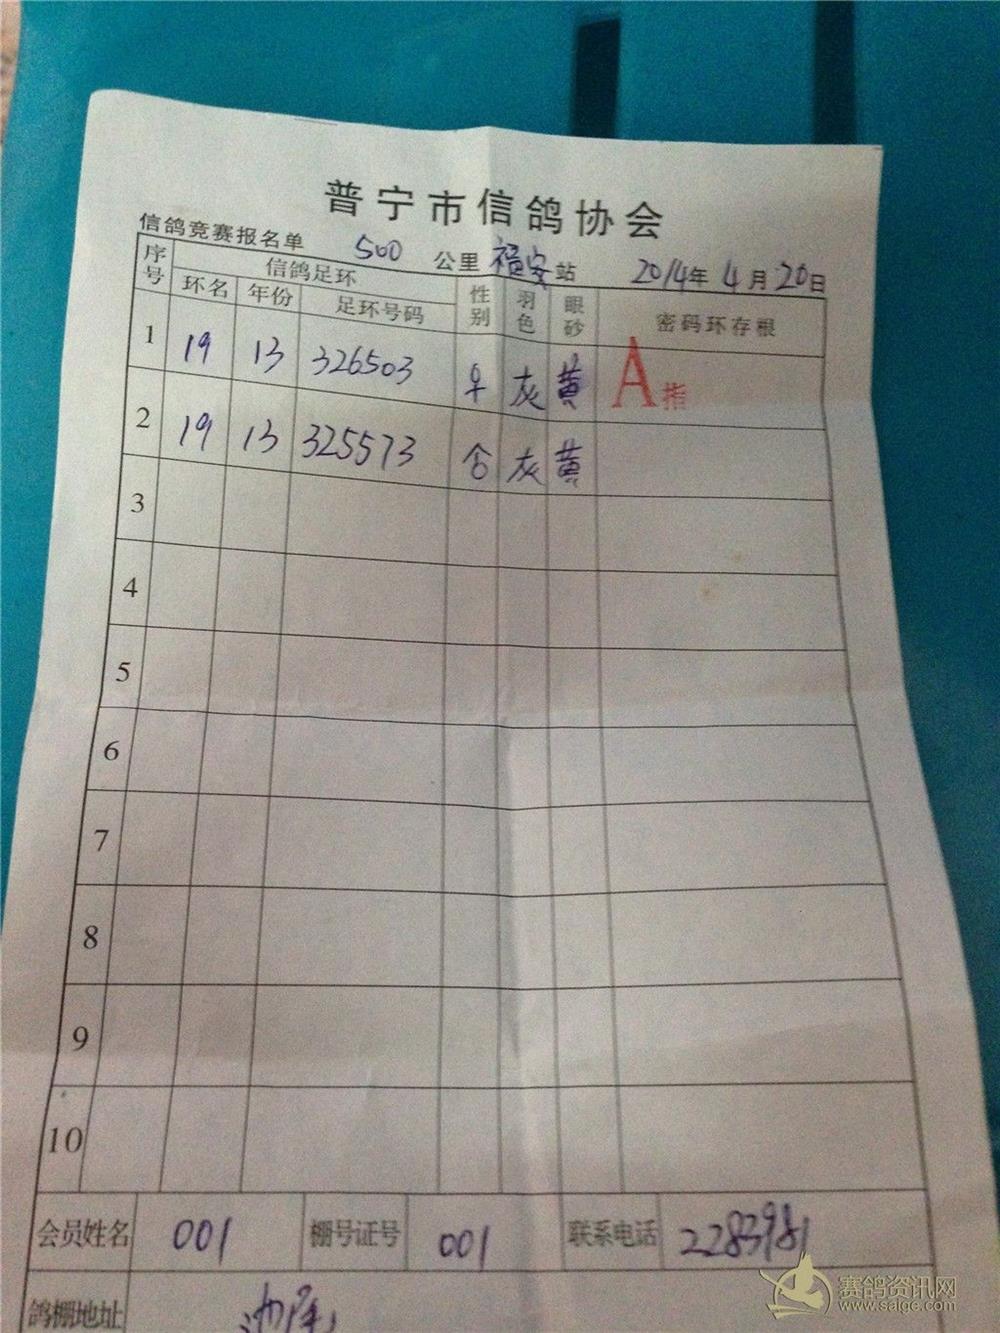 普宁市信鸽协会
信鸽竞赛报名单 500 公里 福安 站 2014年 4月 20日
序号 信鸽足环 性别 羽色 眼砂 密码环存根
环名 年份 足环号码
1 19 13 326503 ♀ 灰 黄 A指
2 19 13 325573 灰 黄
3
4
5
6
7
8
9
10
会员姓名 001 棚号证号 001 联系电话 2283981
鸽棚地址 池尾
赛鸽资讯网
www.saige.com